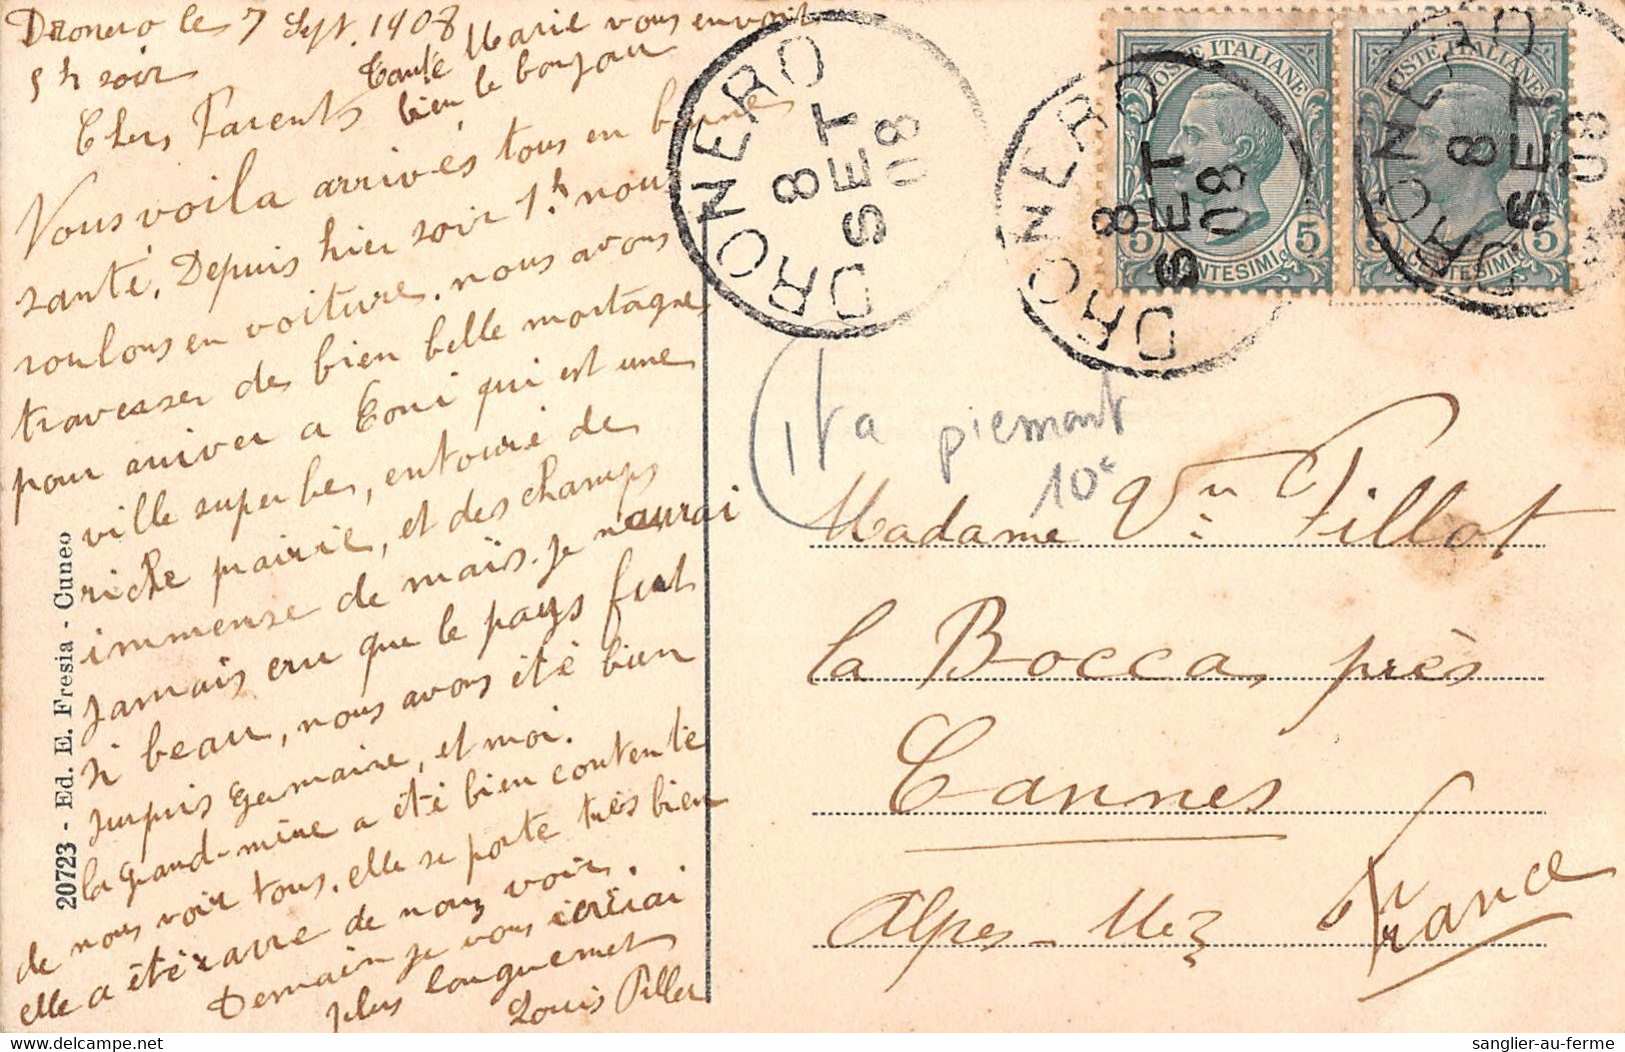 Dronero le 7 Sept. 1908
5 h soir
Tante Marie vous envoit
bien le bonjour
Chers Parents
Nous voila arrivés tous en bonne
santé. Depuis hier soir 1h. nous
roulons en voiture. nous avons
traverser des bien belle montagnes
pour arriver a Coni qui est une
ville superbe, entouré de
riche prairie, et des champs
immense de maïs. Je n'aurai
jamais cru que le pays fut
si beau, nous avons été bien
surpris Germaine, et moi.
la grand-mère a été bien contente
de nous voir tous. elle se porte très bien
elle a été ravie de nous voir.
Demain je vous écrirai
plus longuement
Louis Pillot
20723 - Ed. E. Fresia - Cuneo
DRONERO
8
SET
08
DRONERO
8
SET
08
DRONERO
8
SET
08
POSTE ITALIANE
5 CENTESIMI 5
POSTE ITALIANE
5 CENTESIMI 5
Ita piemont
10€
Madame Vve Pillot
la Bocca, près
Cannes
Alpes-Mes
France
sanglier-au-ferme
delcampe.net